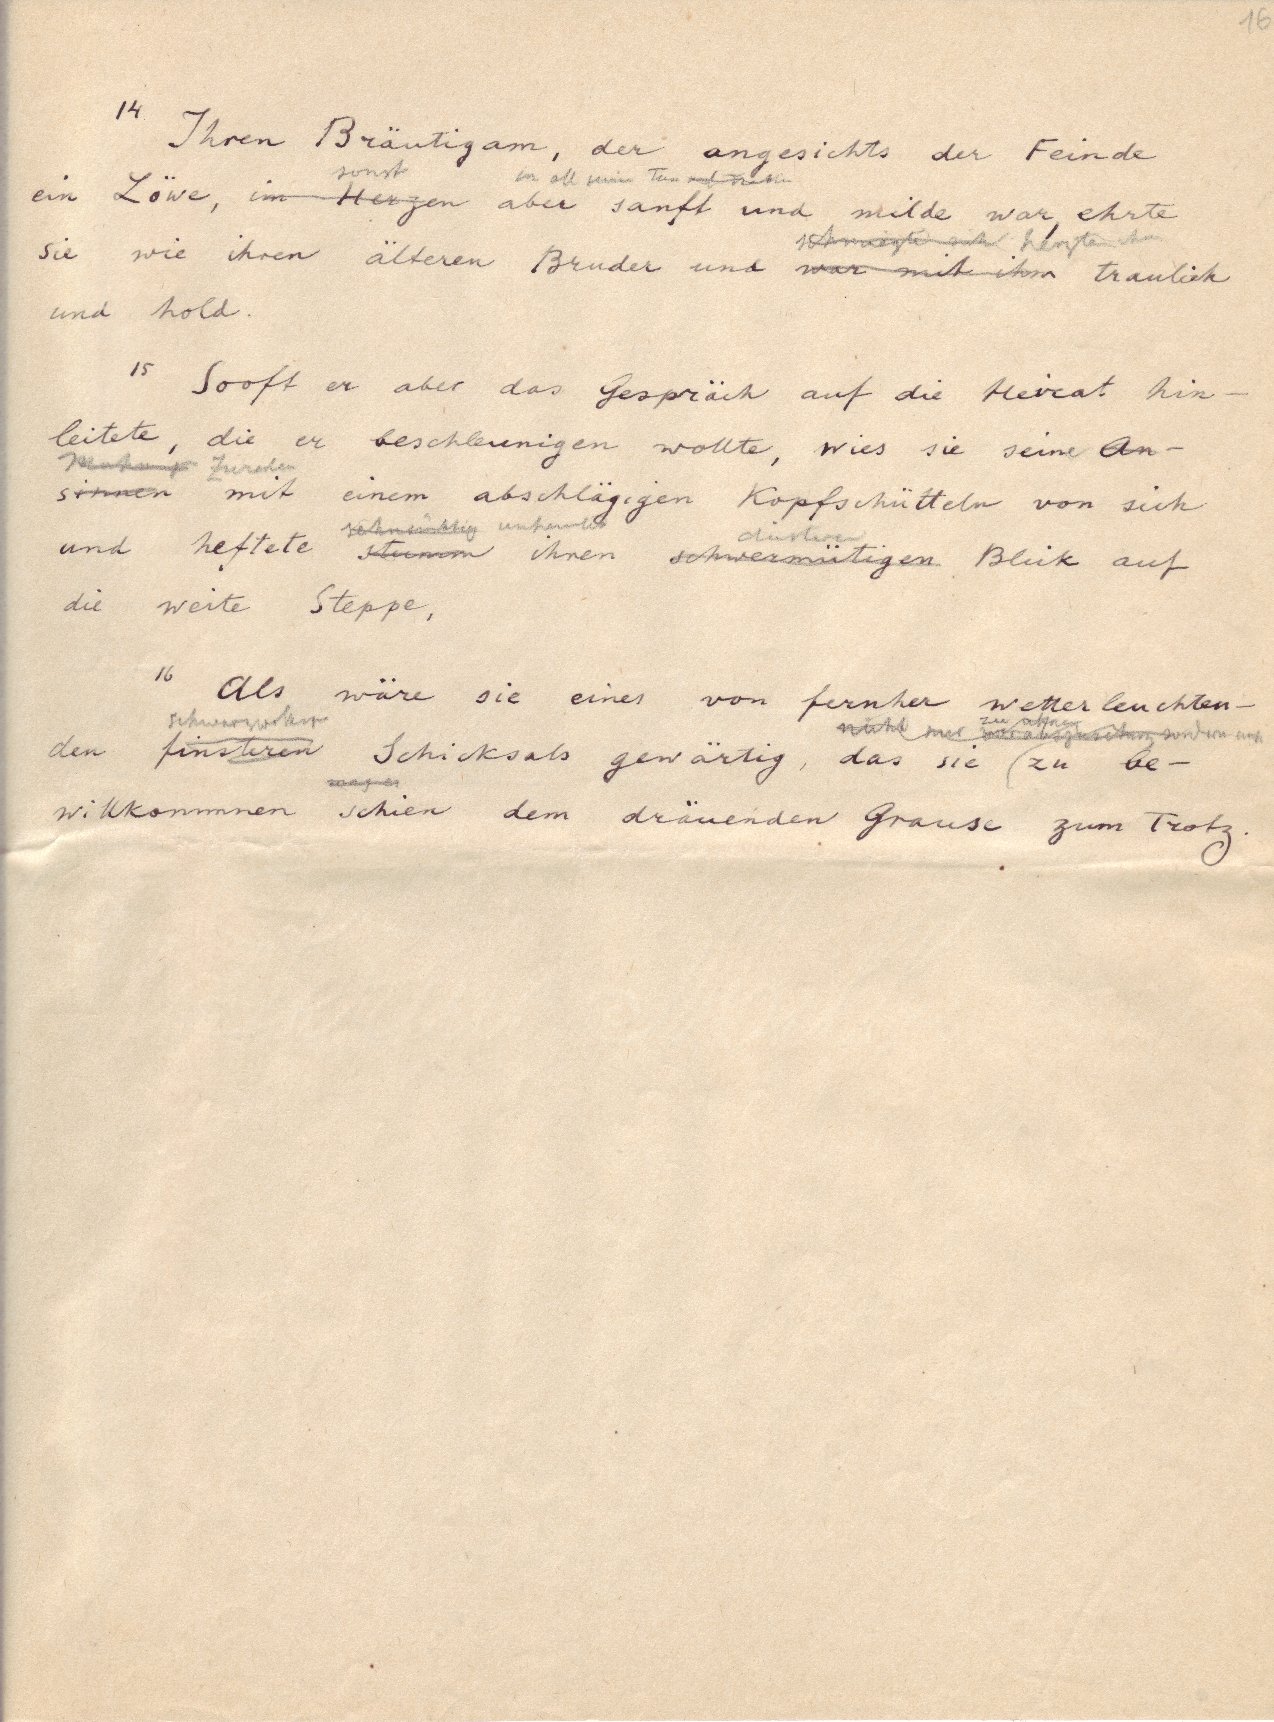 16
14 Ihren Bräutigam, der angesichts der Feinde
sonst in all sein Tun
ein Löwe, im Herzen aber sanft und milde war, ehrte
herzte ihn
sie wie ihren älteren Bruder und war mit ihm traulich
und hold.
15 Sooft er aber das Gespräch auf die Heirat hin-
leitete, die er beschleunigen wollte, wies sie seine An-
Mahnung Zureden
sinnen mit einem abschlägigen Kopfschütteln von sich
sehnsüchtig unverwandt düsteren
und heftete stumm ihren schwermütigen Blick auf
die weite Steppe,
16 Als wäre sie eines von fernher wetterleuchten-
nicht nur zu ahnen sondern auch
den finsteren Schicksals gewärtig, das sie (zu be-
willkommnen schien dem dräuenden Grause zum Trotz.